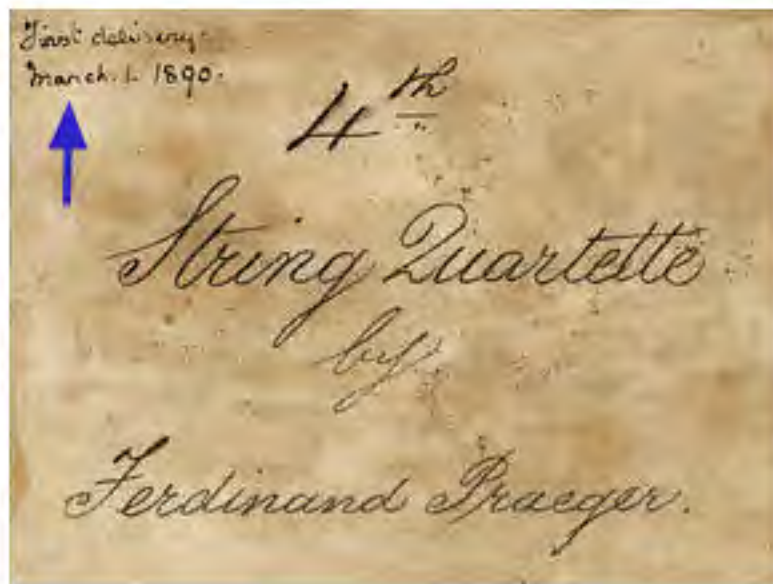 First delivery:
March. 1. 1890.
4th
String Quartette
by
Ferdinand Praeger.